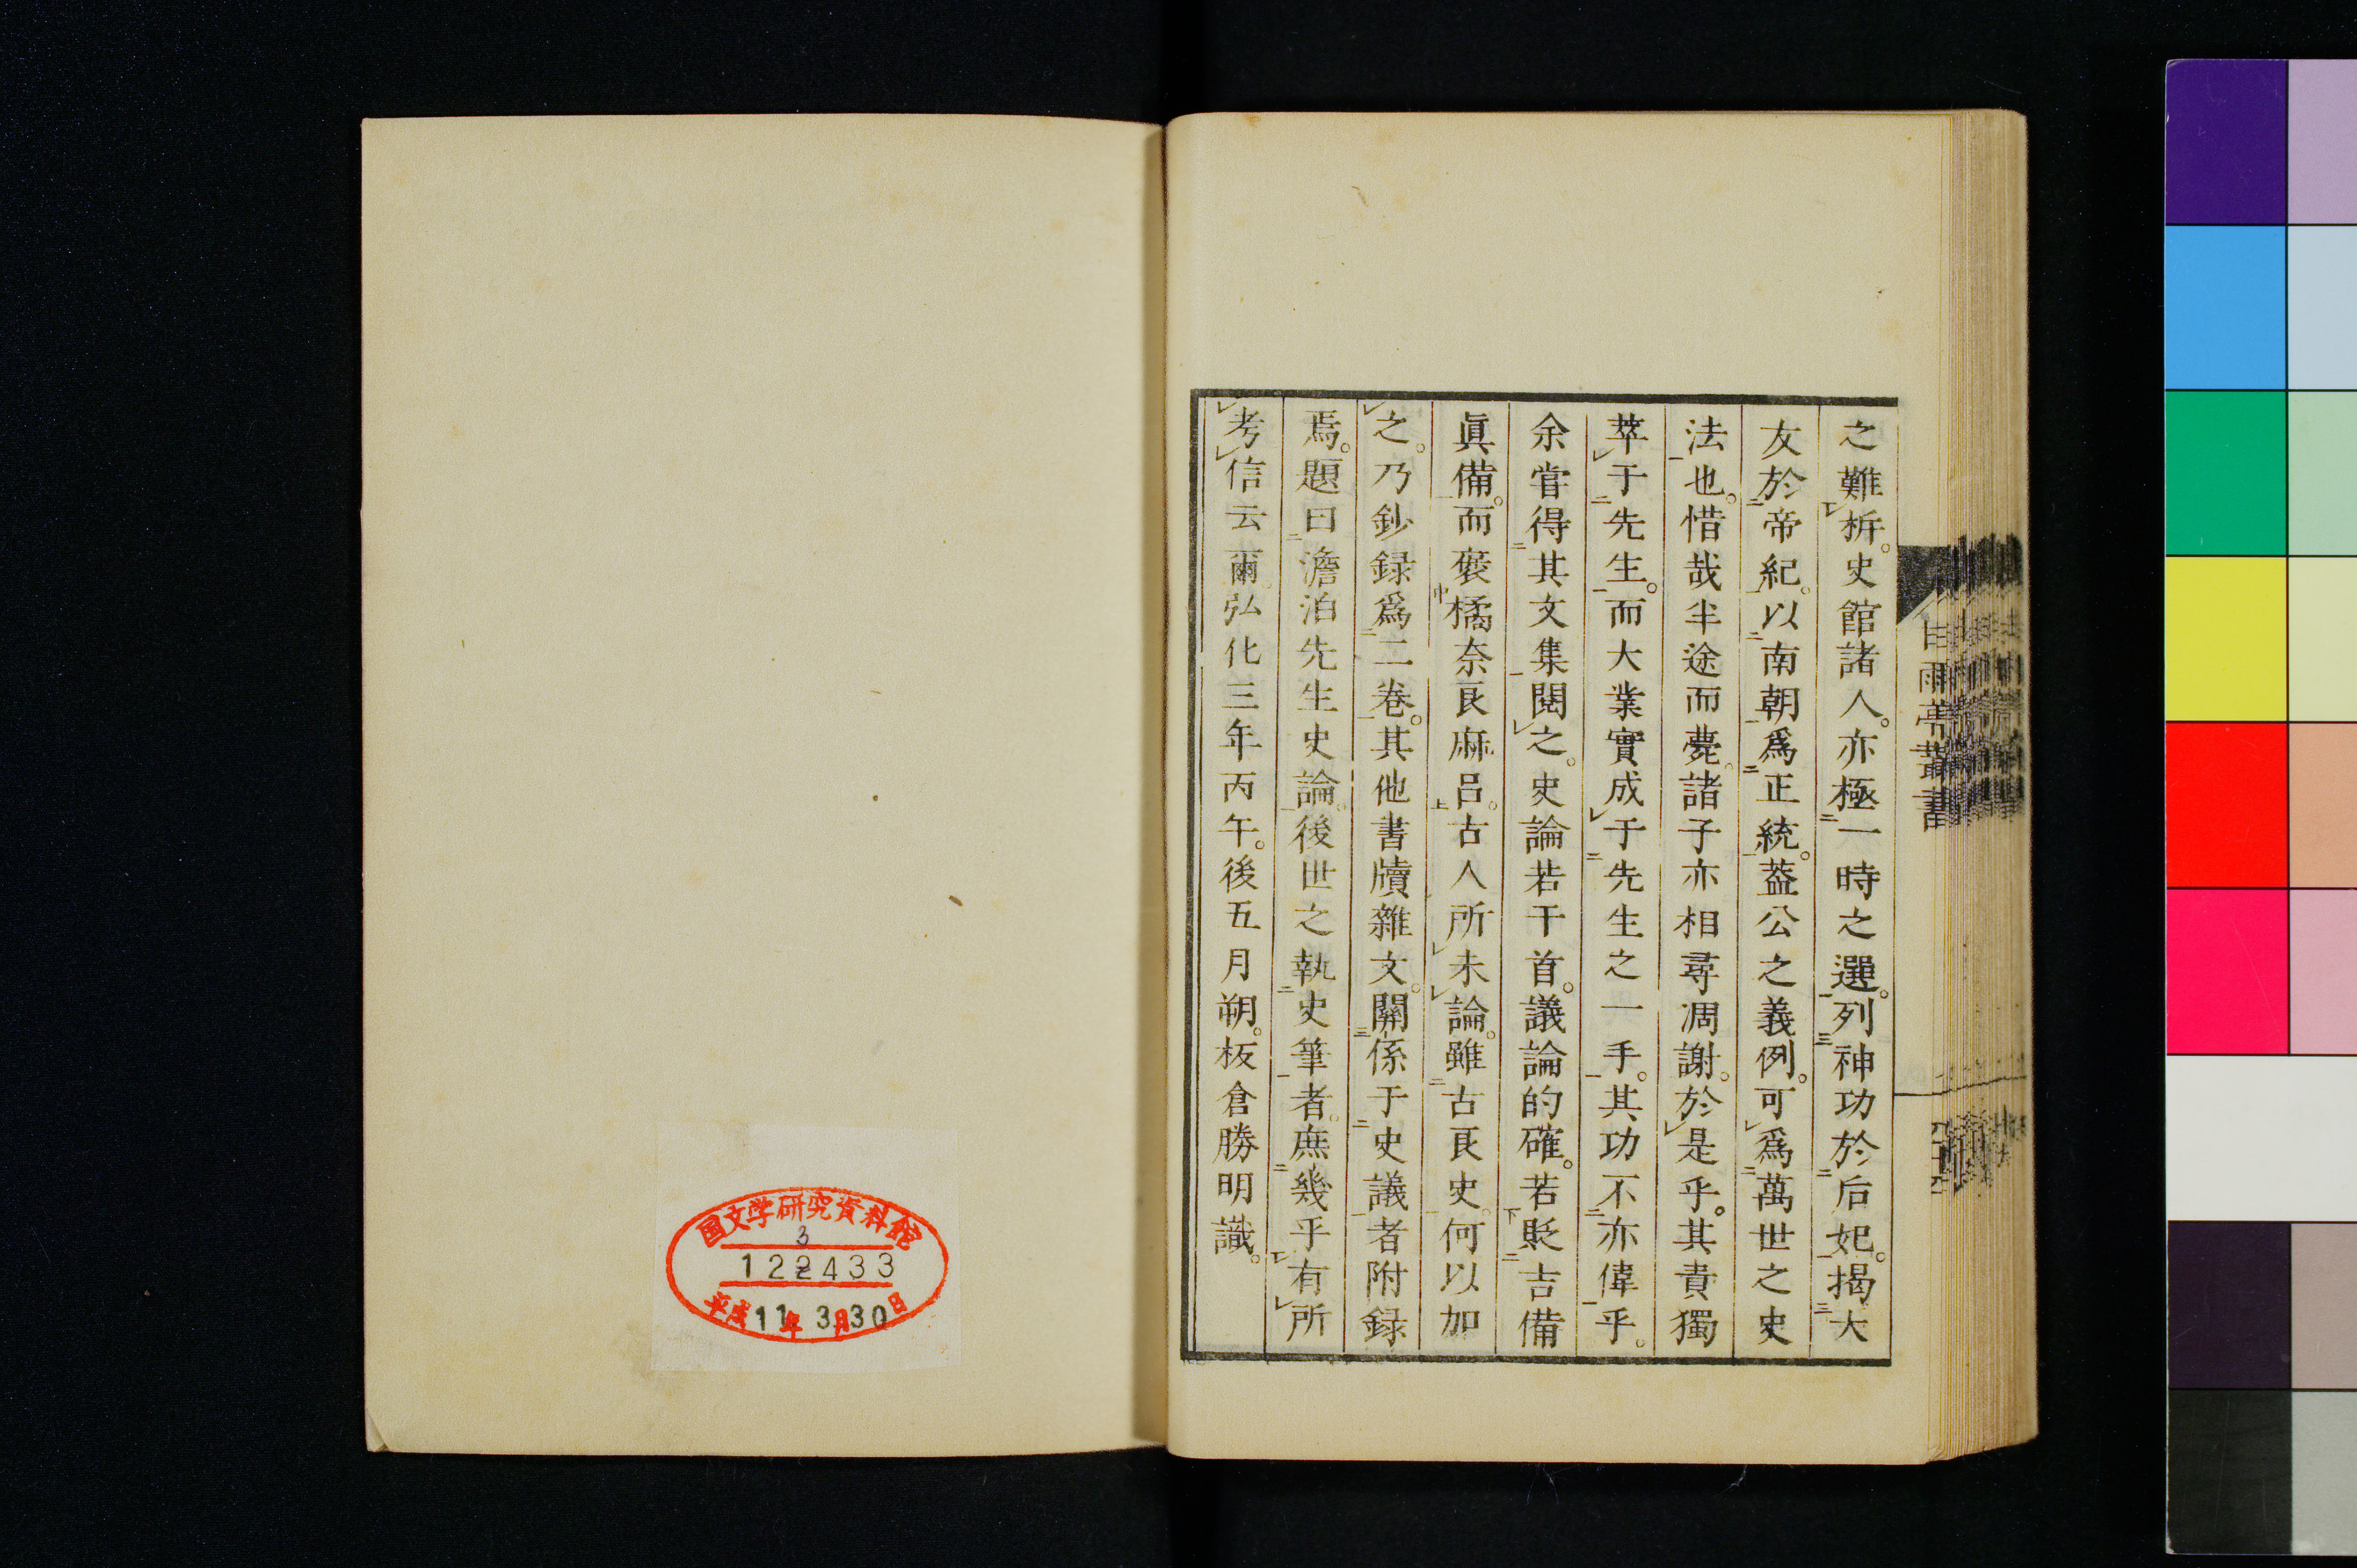 之難析。史館諸人。亦極一時之選。列神功於后妃。揭大
友於帝紀。以南朝爲正統。葢公之義例。可爲萬世之史
法也。惜哉半途而薨。諸子亦相尋凋謝。於是乎。其責獨
萃于先生。而大業實成于先生之一手。其功不亦偉乎。
余嘗得其文集閲之。史論若干首。議論的確。若貶吉備
眞備。而褒橘奈良麻呂。古人所未論。雖古良史。何以加
之。乃鈔録爲二卷。其他書牘雜文。關係于史議者附録
焉。題曰澹泊先生史論。後世之執史筆者。庶幾乎有所
考信云爾。弘化三年丙午。後五月朔。板倉勝明識。
甘雨亭叢書
国文学研究資料館
3
122433
平成11年3月30日